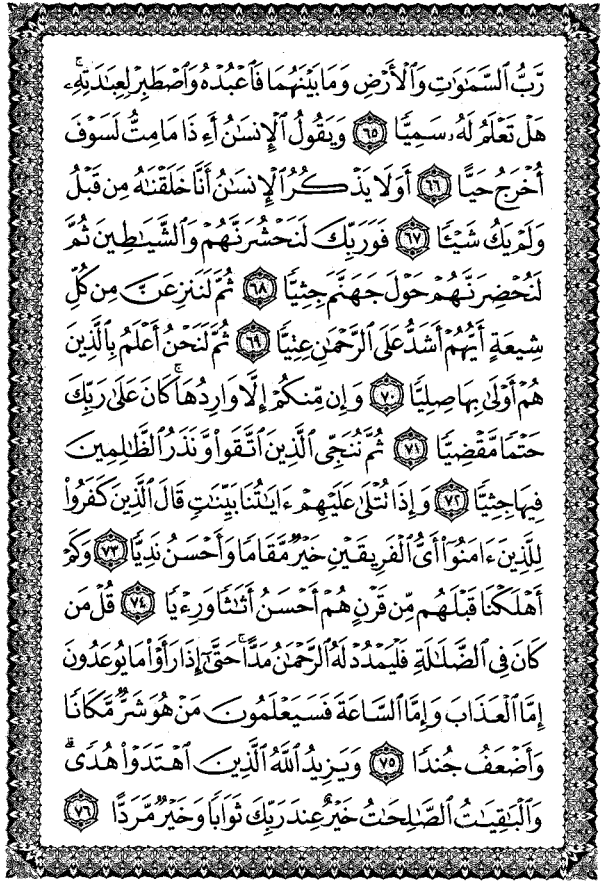 رَّبُّ ٱلسَّمَٰوَٰتِ وَٱلْأَرْضِ وَمَا بَيْنَهُمَا فَٱعْبُدْهُ وَٱصْطَبِرْ لِعِبَٰدَتِهِۦۚ
هَلْ تَعْلَمُ لَهُۥ سَمِيًّا ٦٥ وَيَقُولُ ٱلْإِنسَٰنُ أَءِذَا مَا مِتُّ لَسَوْفَ
أُخْرَجُ حَيًّا ٦٦ أَوَلَا يَذْكُرُ ٱلْإِنسَٰنُ أَنَّا خَلَقْنَٰهُ مِن قَبْلُ
وَلَمْ يَكُ شَيْـًٔا ٦٧ فَوَرَبِّكَ لَنَحْشُرَنَّهُمْ وَٱلشَّيَٰطِينَ ثُمَّ
لَنُحْضِرَنَّهُمْ حَوْلَ جَهَنَّمَ جِثِيًّا ٦٨ ثُمَّ لَنَنزِعَنَّ مِن كُلِّ
شِيعَةٍ أَيُّهُمْ أَشَدُّ عَلَى ٱلرَّحْمَٰنِ عِتِيًّا ٦٩ ثُمَّ لَنَحْنُ أَعْلَمُ بِٱلَّذِينَ
هُمْ أَوْلَىٰ بِهَا صِلِيًّا ٧٠ وَإِن مِّنكُمْ إِلَّا وَارِدُهَاۚ كَانَ عَلَىٰ رَبِّكَ
حَتْمًا مَّقْضِيًّا ٧١ ثُمَّ نُنَجِّى ٱلَّذِينَ ٱتَّقَوا۟ وَّنَذَرُ ٱلظَّٰلِمِينَ
فِيهَا جِثِيًّا ٧٢ وَإِذَا تُتْلَىٰ عَلَيْهِمْ ءَايَٰتُنَا بَيِّنَٰتٍ قَالَ ٱلَّذِينَ كَفَرُوا۟
لِلَّذِينَ ءَامَنُوٓا۟ أَىُّ ٱلْفَرِيقَيْنِ خَيْرٌ مَّقَامًا وَأَحْسَنُ نَدِيًّا ٧٣ وَكَمْ
أَهْلَكْنَا قَبْلَهُم مِّن قَرْنٍ هُمْ أَحْسَنُ أَثَٰثًا وَرِءْيًا ٧٤ قُلْ مَن
كَانَ فِى ٱلضَّلَٰلَةِ فَلْيَمْدُدْ لَهُ ٱلرَّحْمَٰنُ مَدًّاۚ حَتَّىٰٓ إِذَا رَأَوْا۟ مَا يُوعَدُونَ
إِمَّا ٱلْعَذَابَ وَإِمَّا ٱلسَّاعَةَ فَسَيَعْلَمُونَ مَنْ هُوَ شَرٌّ مَّكَانًا
وَأَضْعَفُ جُندًا ٧٥ وَيَزِيدُ ٱللَّهُ ٱلَّذِينَ ٱهْتَدَوْا۟ هُدًىۗ
وَٱلْبَٰقِيَٰتُ ٱلصَّٰلِحَٰتُ خَيْرٌ عِندَ رَبِّكَ ثَوَابًا وَخَيْرٌ مَّرَدًّا ٧٦